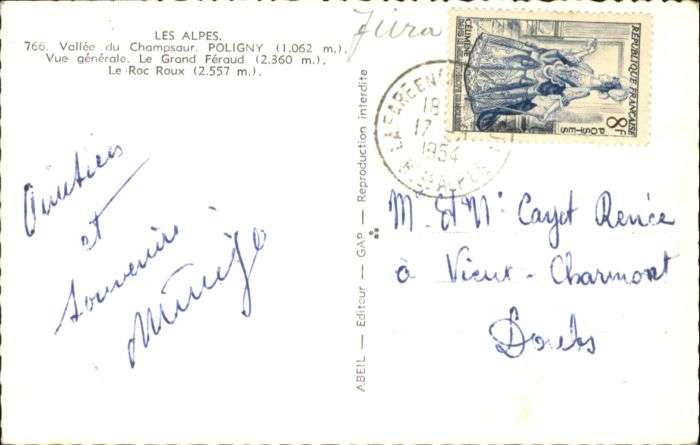 LES ALPES.
766. Vallée du Champsaur. POLIGNY (1.062 m.).
Vue générale. Le Grand Féraud (2.360 m.).
Le Roc Roux (2.557 m.).
Jura
RÉPUBLIQUE FRANÇAISE
8F
POSTES
CÉLIMÈNE
LA FARE EN
18
17
1954
Amitiés
et
souvenirs
ABEIL — Editeur — GAP — Reproduction interdite
M et Mme Cayot Renée
à Vieux-Charmont
Doubs